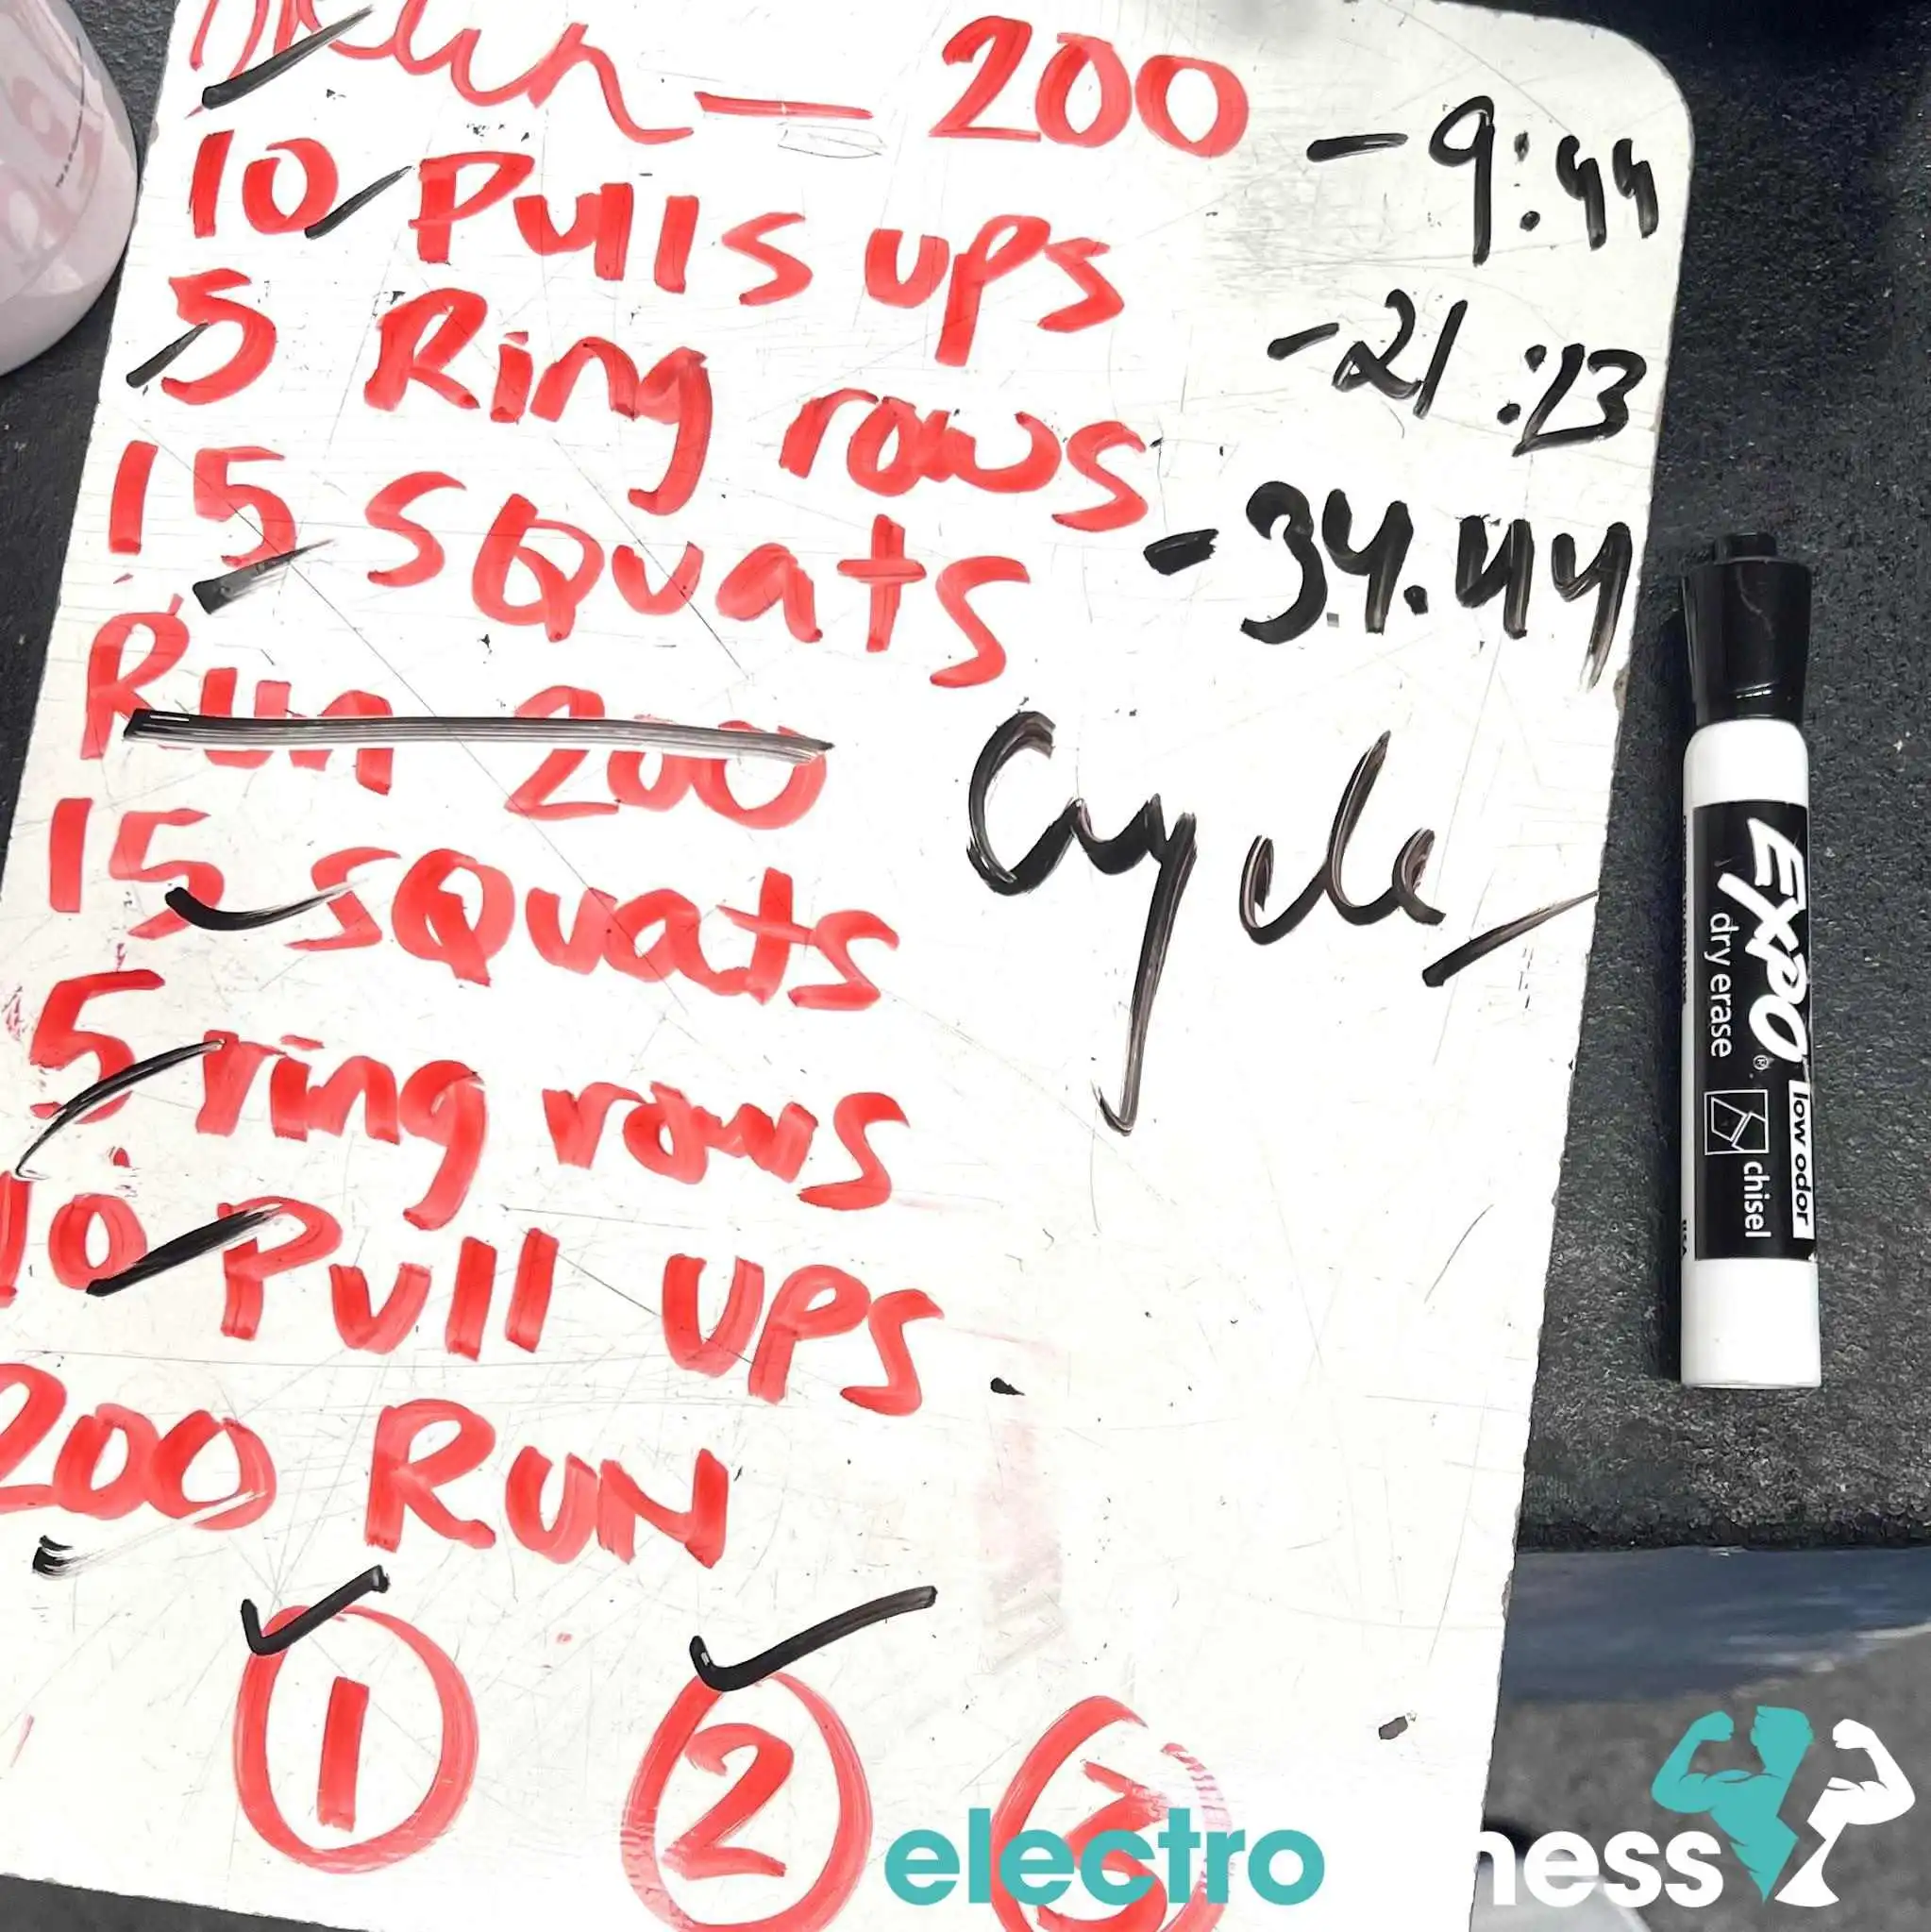 200
- 9:44
10 Pulls ups
5 Ring rows
- 21:23
15 SQuats
- 34.44
Run 200
Cycle
15 SQuats
5 ring rows
10 Pull UPS
200 RUN
1 2 3
EXPO®
dry erase
low odor
chisel
USA
electro ness